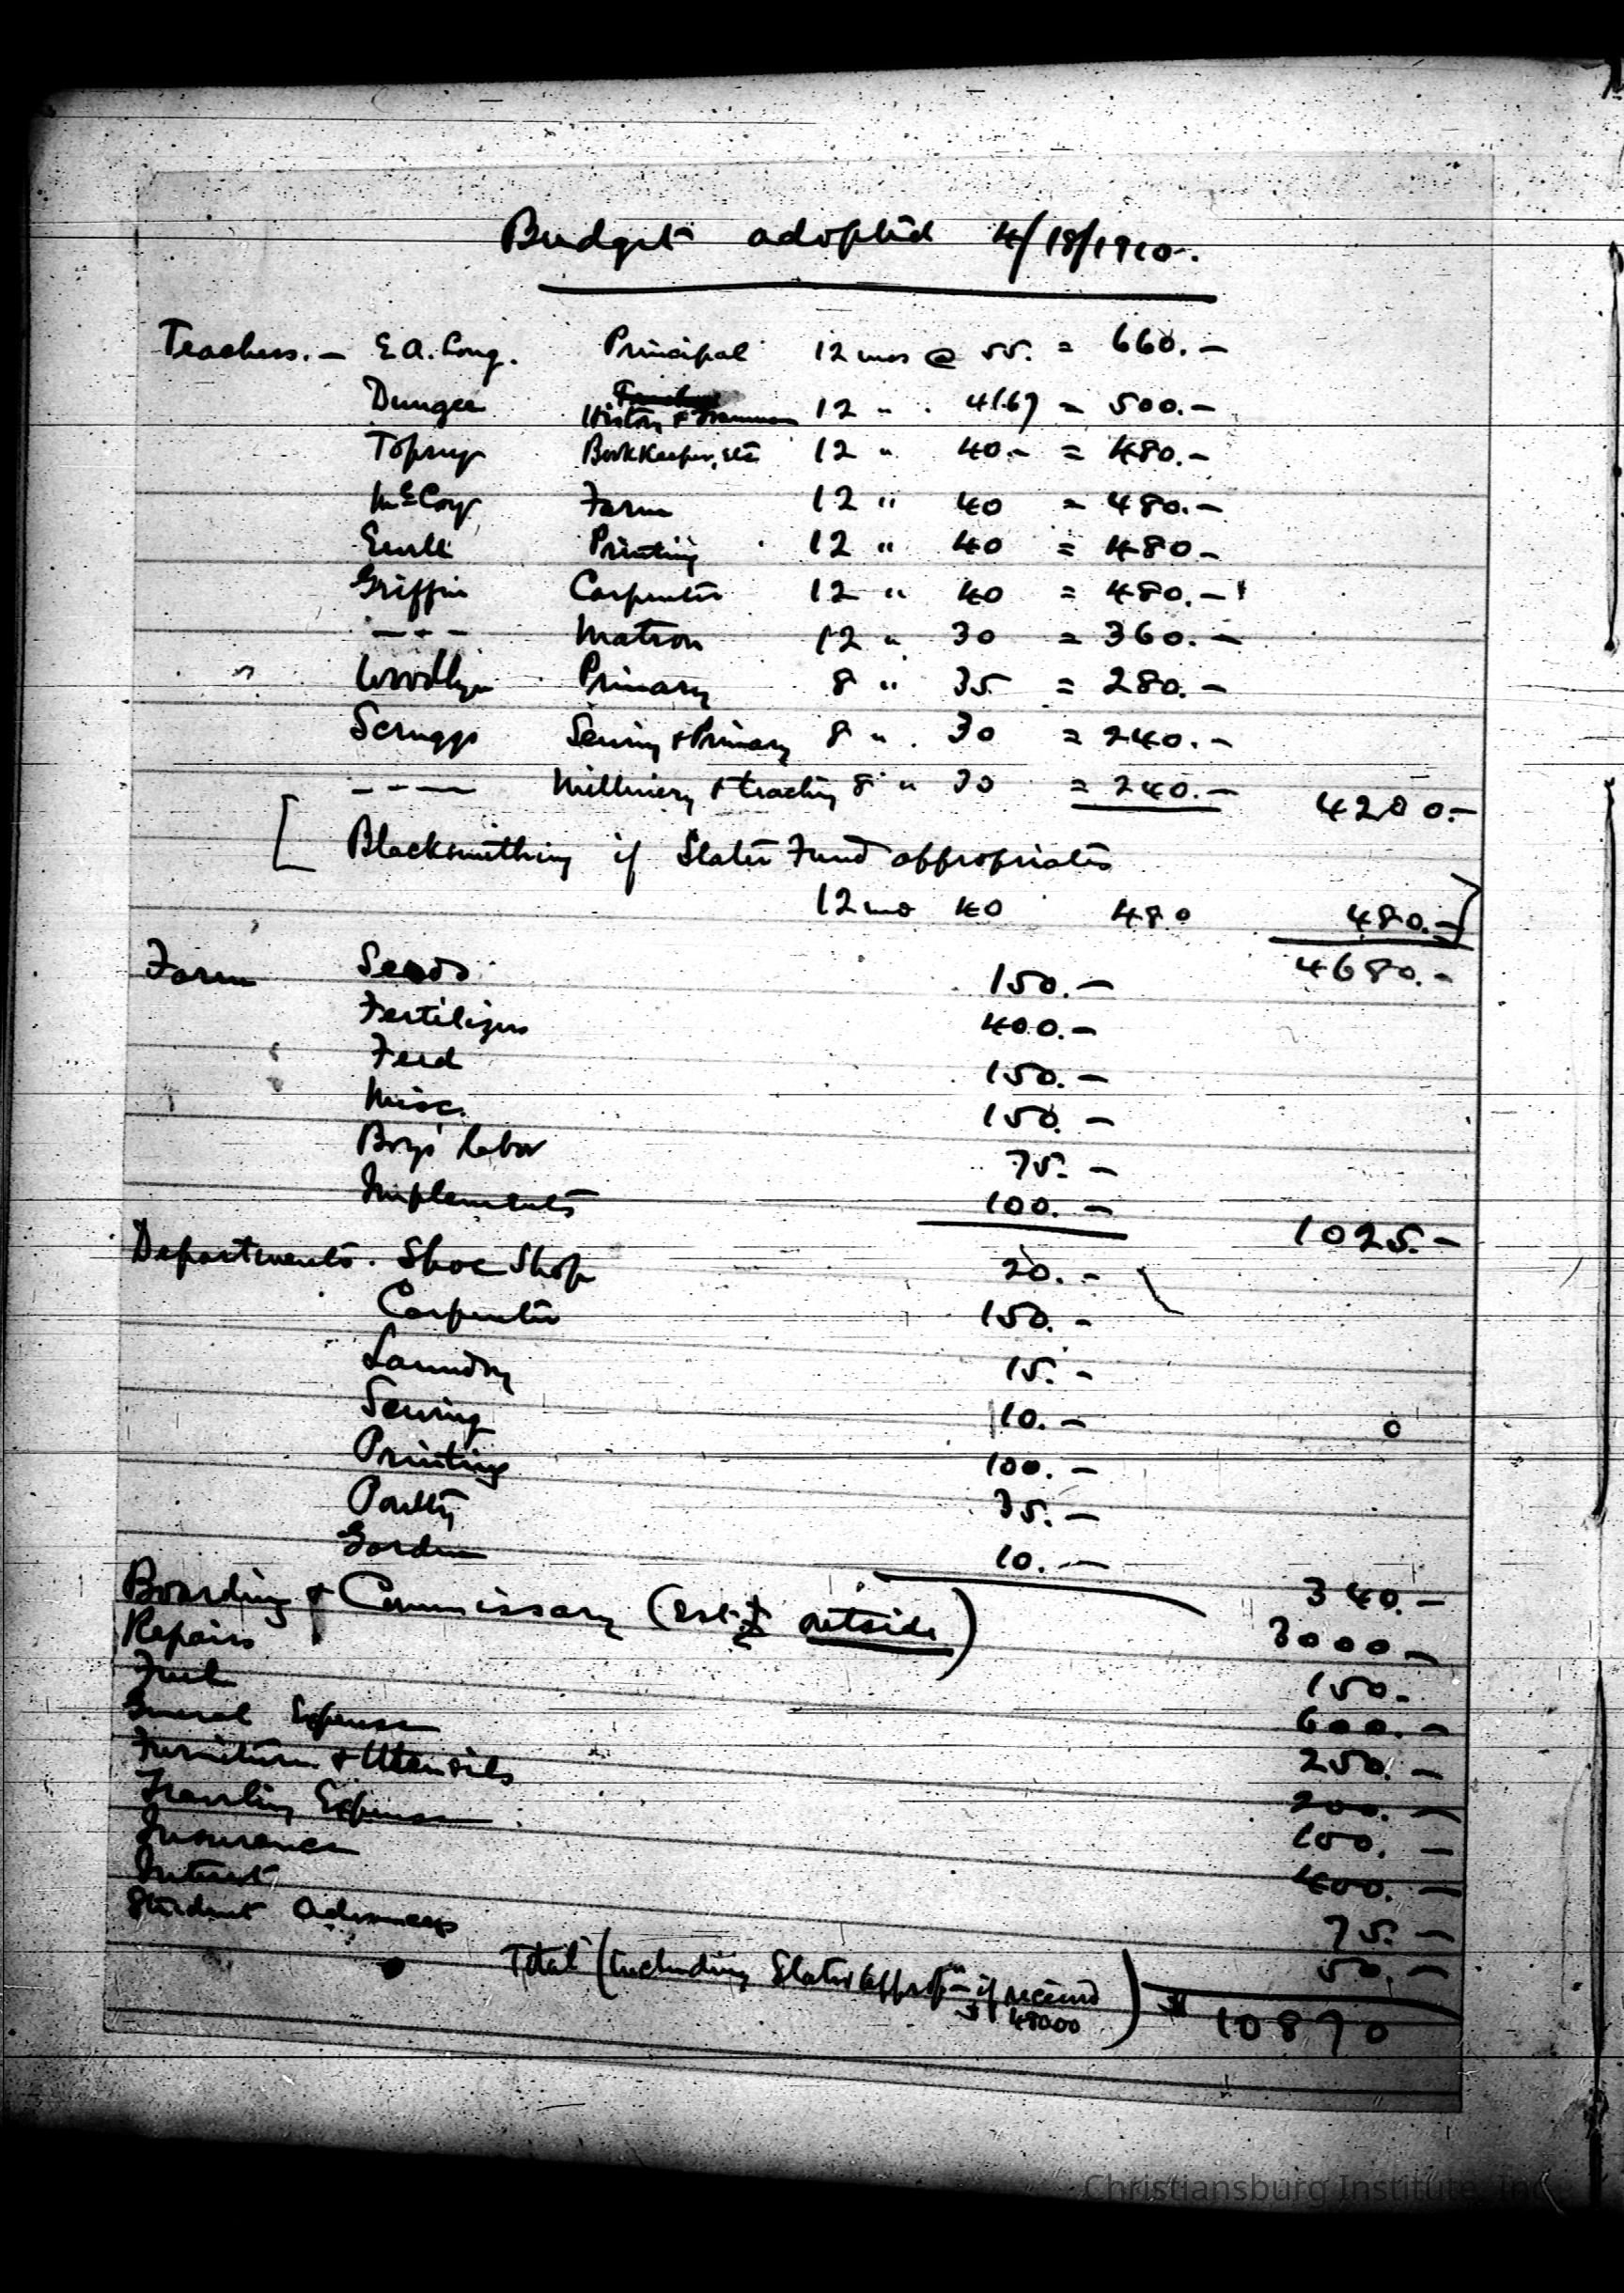 Budget adopted 4/18/1910.
Teachers. — E.A. Long. Principal 12 mos @ 55. = 660.—
Dungee History & 12 " . 41.67 = 500.—
Topsup Bookkeeper, etc 12 " 40.- = 480.—
McCoy Farm 12 " 40 = 480.—
Printing 12 " 40 = 480—
Griffin Carpenter 12 " 40 = 480.—
— - — Matron 12 " 30 = 360.—
Woodlyn Primary 8 " 35 = 280.—
Scruggs Sewing & Primary 8 " . 30 = 240.—
— - — Millinery & teaching 8 " 30 = 240.— 4200.—
[ Blacksmithing if Slater Fund appropriates
12 mo 40 480 480.— ]
4680.—
Farm Seeds 150.—
Fertilizers 400.—
Feed 150.—
Misc. 150.—
Boys' labor 75.—
Implements 100.— 1025.—
Departments. Shoe Shop 20.—
Carpenter 150.—
Laundry 15.—
Sewing 10.—
Printing 100.—
Poultry 35.—
Garden 10.— 340.—
Boarding & Commissary (est'd outside) 3000—
Repairs 150.
Fuel 600.—
General Expense 250.—
Furniture & Utensils 200.—
Traveling Expense 100.—
Insurance 400.—
Interest 75.—
Student Advances 50.—
Total (including Slater approp'n if received) $ 10870
$ 480.00